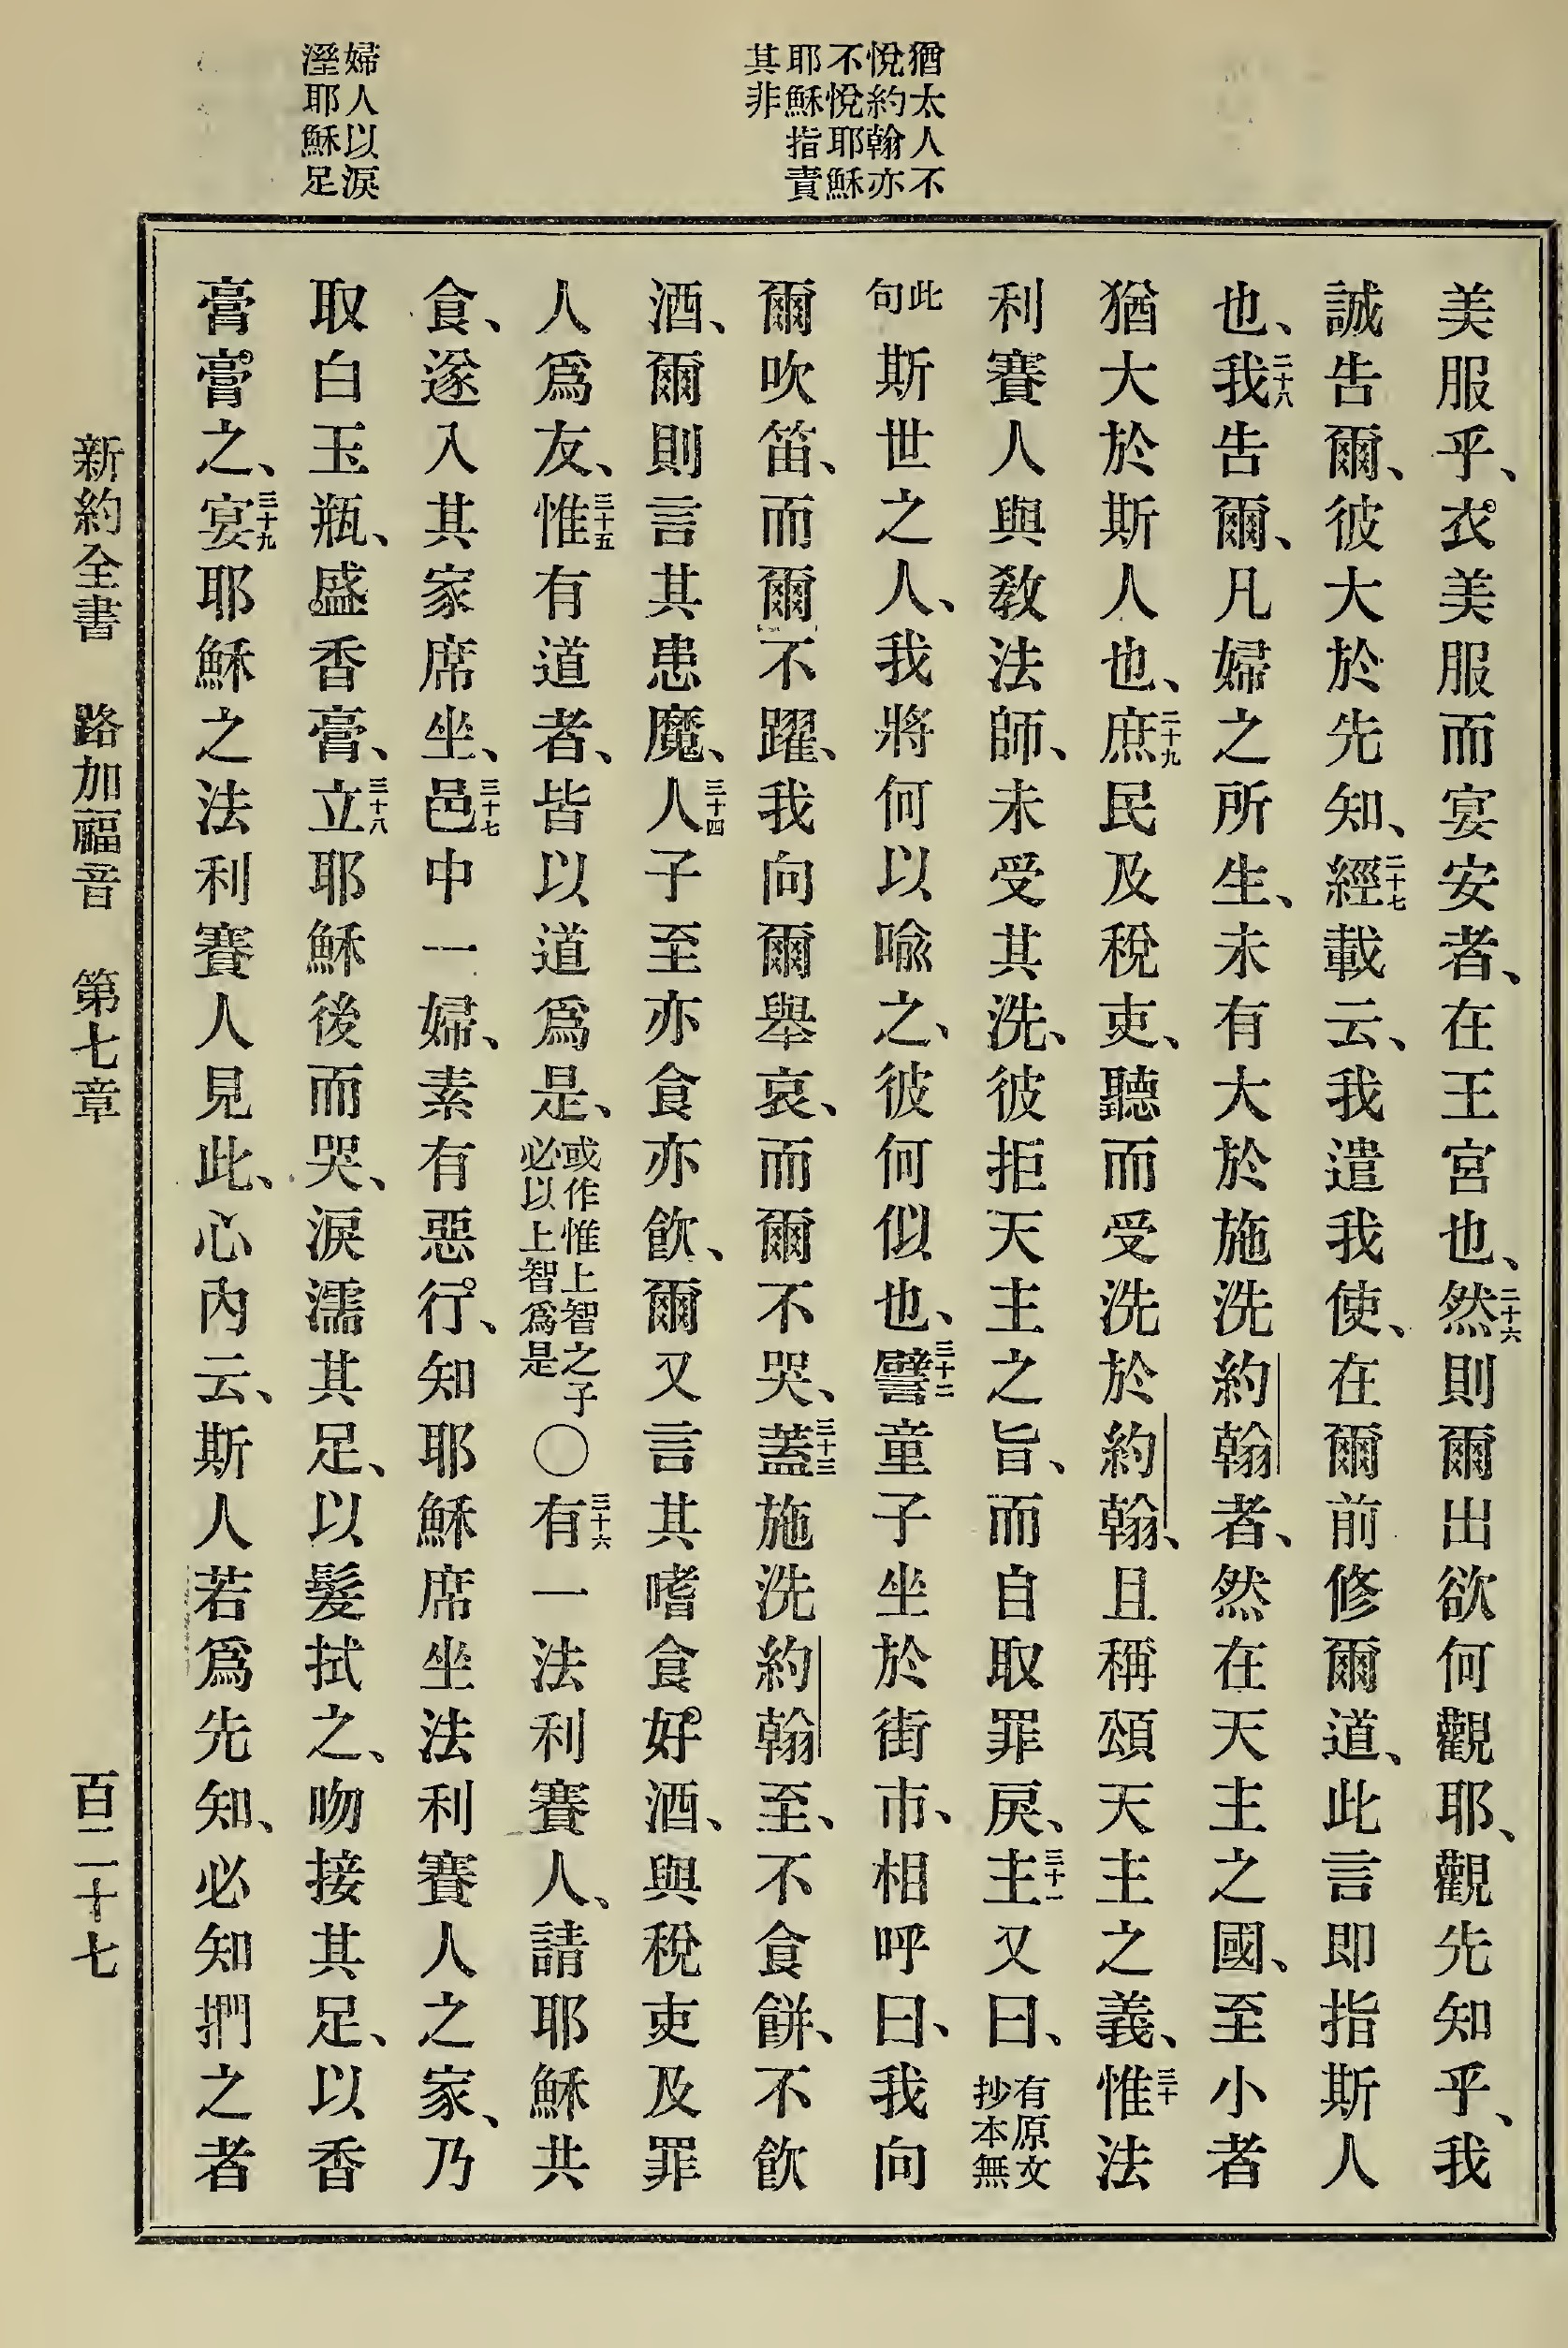 猶太人不
悅約翰亦
不悅耶穌
耶穌指責
其非
婦人以淚
溼耶穌足
美服乎、衣美服而宴安者、在王宮也、二十六然則爾出欲何觀耶、觀先知乎、我
誠告爾、彼大於先知、二十七經載云、我遣我使、在爾前修爾道、此言即指斯人
也、二十八我告爾、凡婦之所生、未有大於施洗約翰者、然在天主之國、至小者
猶大於斯人也、二十九庶民及稅吏、聽而受洗於約翰、且稱頌天主之義、三十惟法
利賽人與教法師、未受其洗、彼拒天主之旨、而自取罪戾、三十一主又曰、有原文抄本無
此句斯世之人、我將何以喻之、彼何似也、三十二譬童子坐於街市、相呼曰、我向
爾吹笛、而爾不躍、我向爾舉哀、而爾不哭、三十三蓋施洗約翰至、不食餅、不飲
酒、爾則言其患魔、三十四人子至亦食亦飲、爾又言其嗜食好酒、與稅吏及罪
人為友、三十五惟有道者、皆以道為是、或作惟上智之子必以上智為是〇三十六有一法利賽人、請耶穌共
食、遂入其家席坐、三十七邑中一婦、素有惡行、知耶穌席坐法利賽人之家、乃
取白玉瓶、盛香膏、三十八立耶穌後而哭、淚濡其足、以髮拭之、吻接其足、以香
膏膏之、三十九宴耶穌之法利賽人見此、心內云、斯人若為先知、必知捫之者
新約全書 路加福音 第七章 百二十七